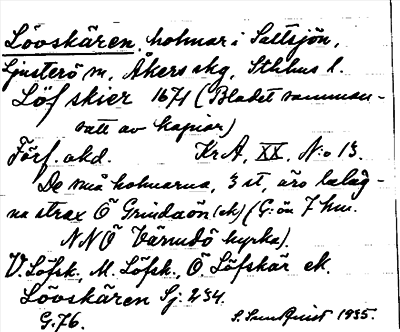 Lövskären, holmar i Saltsjön,
Ljusterö sn, Åkers skg, Sthlms l.
Löfskier 1671 (Bladet samman-
satt av kopior)
Förf. okd. KrA, XX, N:o 13.
De små holmarna, 3 st, äro beläg-
na strax Ö Grindaön (ek) (G:ön 7 km.
NNÖ Värmdö kyrka).
V. Löfsk., M. Löfsk., Ö. Löfskär ek.
Lövskären Sj. 234.
G.76. S. Sundquist 1935.